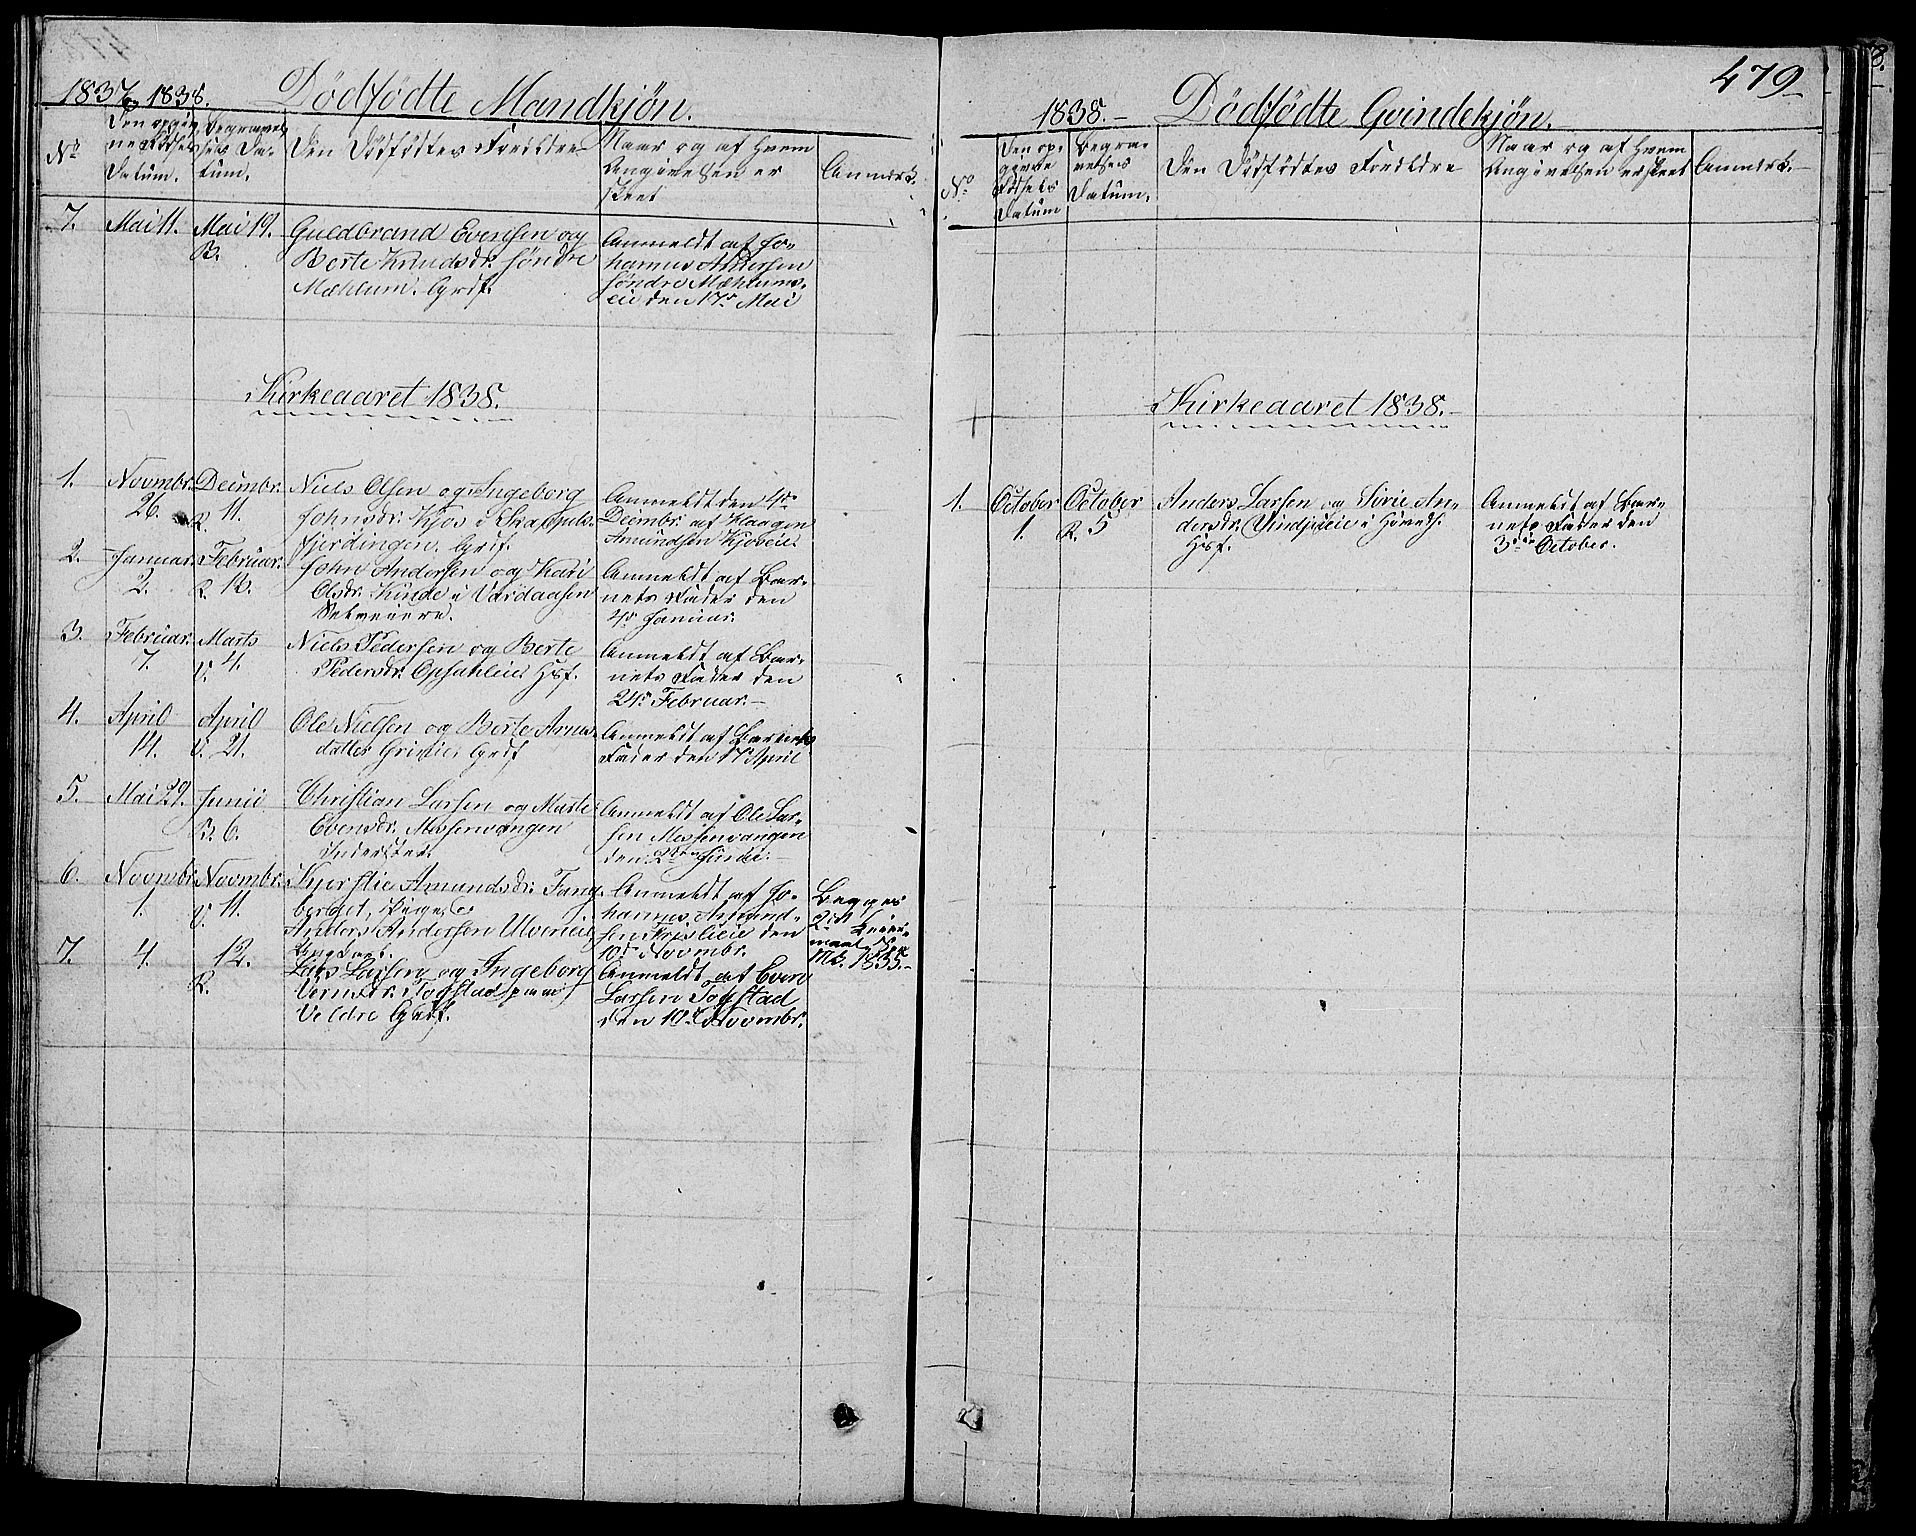 1837 & 1838. Dødfødte Mandkjøn.
No
Den opgiv-
ne Fødsels
Datum.
Begravel-
sels Da-
tum.
Den Dødfødtes Forældre
Naar og af Hvem
Angivelsen er
skeet
Anmerk.
7. Mai 11. Mai 19.
B.
Guldbrand Evensen og
Berte Knudsdr. søndre
Mæhlum. Grdf.
Anmeldt af Jo-
hannes Andersen
søndre Mæhlums-
eie den 17de Mai
Kirkeaaret 1838.
1. Novmbr. 26. Decmbr. R. 11.
Niels Olsen og Ingeborg
Johnsdr. Kjos i Skappels-
fjerdingen. Grdf.
Anmeldt den 4de
Decmbr. af Haagen
Amundsen Kjoseie.
2. Januar 2. Februar. R. 18.
John Andersen og Kari
Olsdr. Kinde i Vardaasen
Selveiere.
Anmeldt af Bar-
nets Fader den
4de Januar.
3. Februar. 7. Marts V. 4.
Niels Pedersen og Berte
Pedersdr. Opsahleie Hsf.
Anmeldt af Bar-
nets Fader den
24de Februar.
4. April 14. April V. 21.
Ole Nielsen og Berte Arnes-
datter Grdf
Anmeldt af Barnets
Fader den 17 April
5. Mai 29. Junii B. 6.
Christian Larsen og Marte
Evensdr. Messenvangen
Inderster.
Anmeldt af Ole Lar-
sen Messenvangen
den 2den Junii.
6. Novmbr. 1. Novmbr. V. 11.
Kjerstie Amundsdr. Fang-
berget, Pige, &
Anders Andersen Ulveneie
Ungkarl.
Anmeldt af Jo-
hannes Amund-
sen Frislieie den
10de Novmbr.
Begges
2det Leier-
maal, See
No. 1835.
7. 4. 12.
R.
Lars Larsen og Ingeborg
Togstad paa
Veldre Grdf.
Anmeldt af Even
Larsen Togstad
den 10de Novmbr.
479
1838. Dødfødte Qvindekjøn.
No
Den op-
givne
Fødsels
Datum
Begra-
velses
Datum.
Den Dødfødtes Forældre
Naar og af Hvem
Angivelsen er skeet
Anmerk.
Kirkeaaret 1838.
1. October 1. October R. 5
Anders Larsen og Sørie An-
dersdr. Vindjueie i Hoveds.
Hsf.
Anmeldt af Bar-
nets Fader den
3die October.